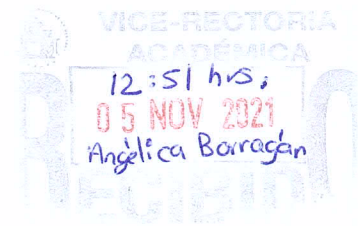 VICE-RECTORIA
ACADÉMICA
12:51 hrs,
05 NOV 2021
Angélica Barragán
RECIBIDO